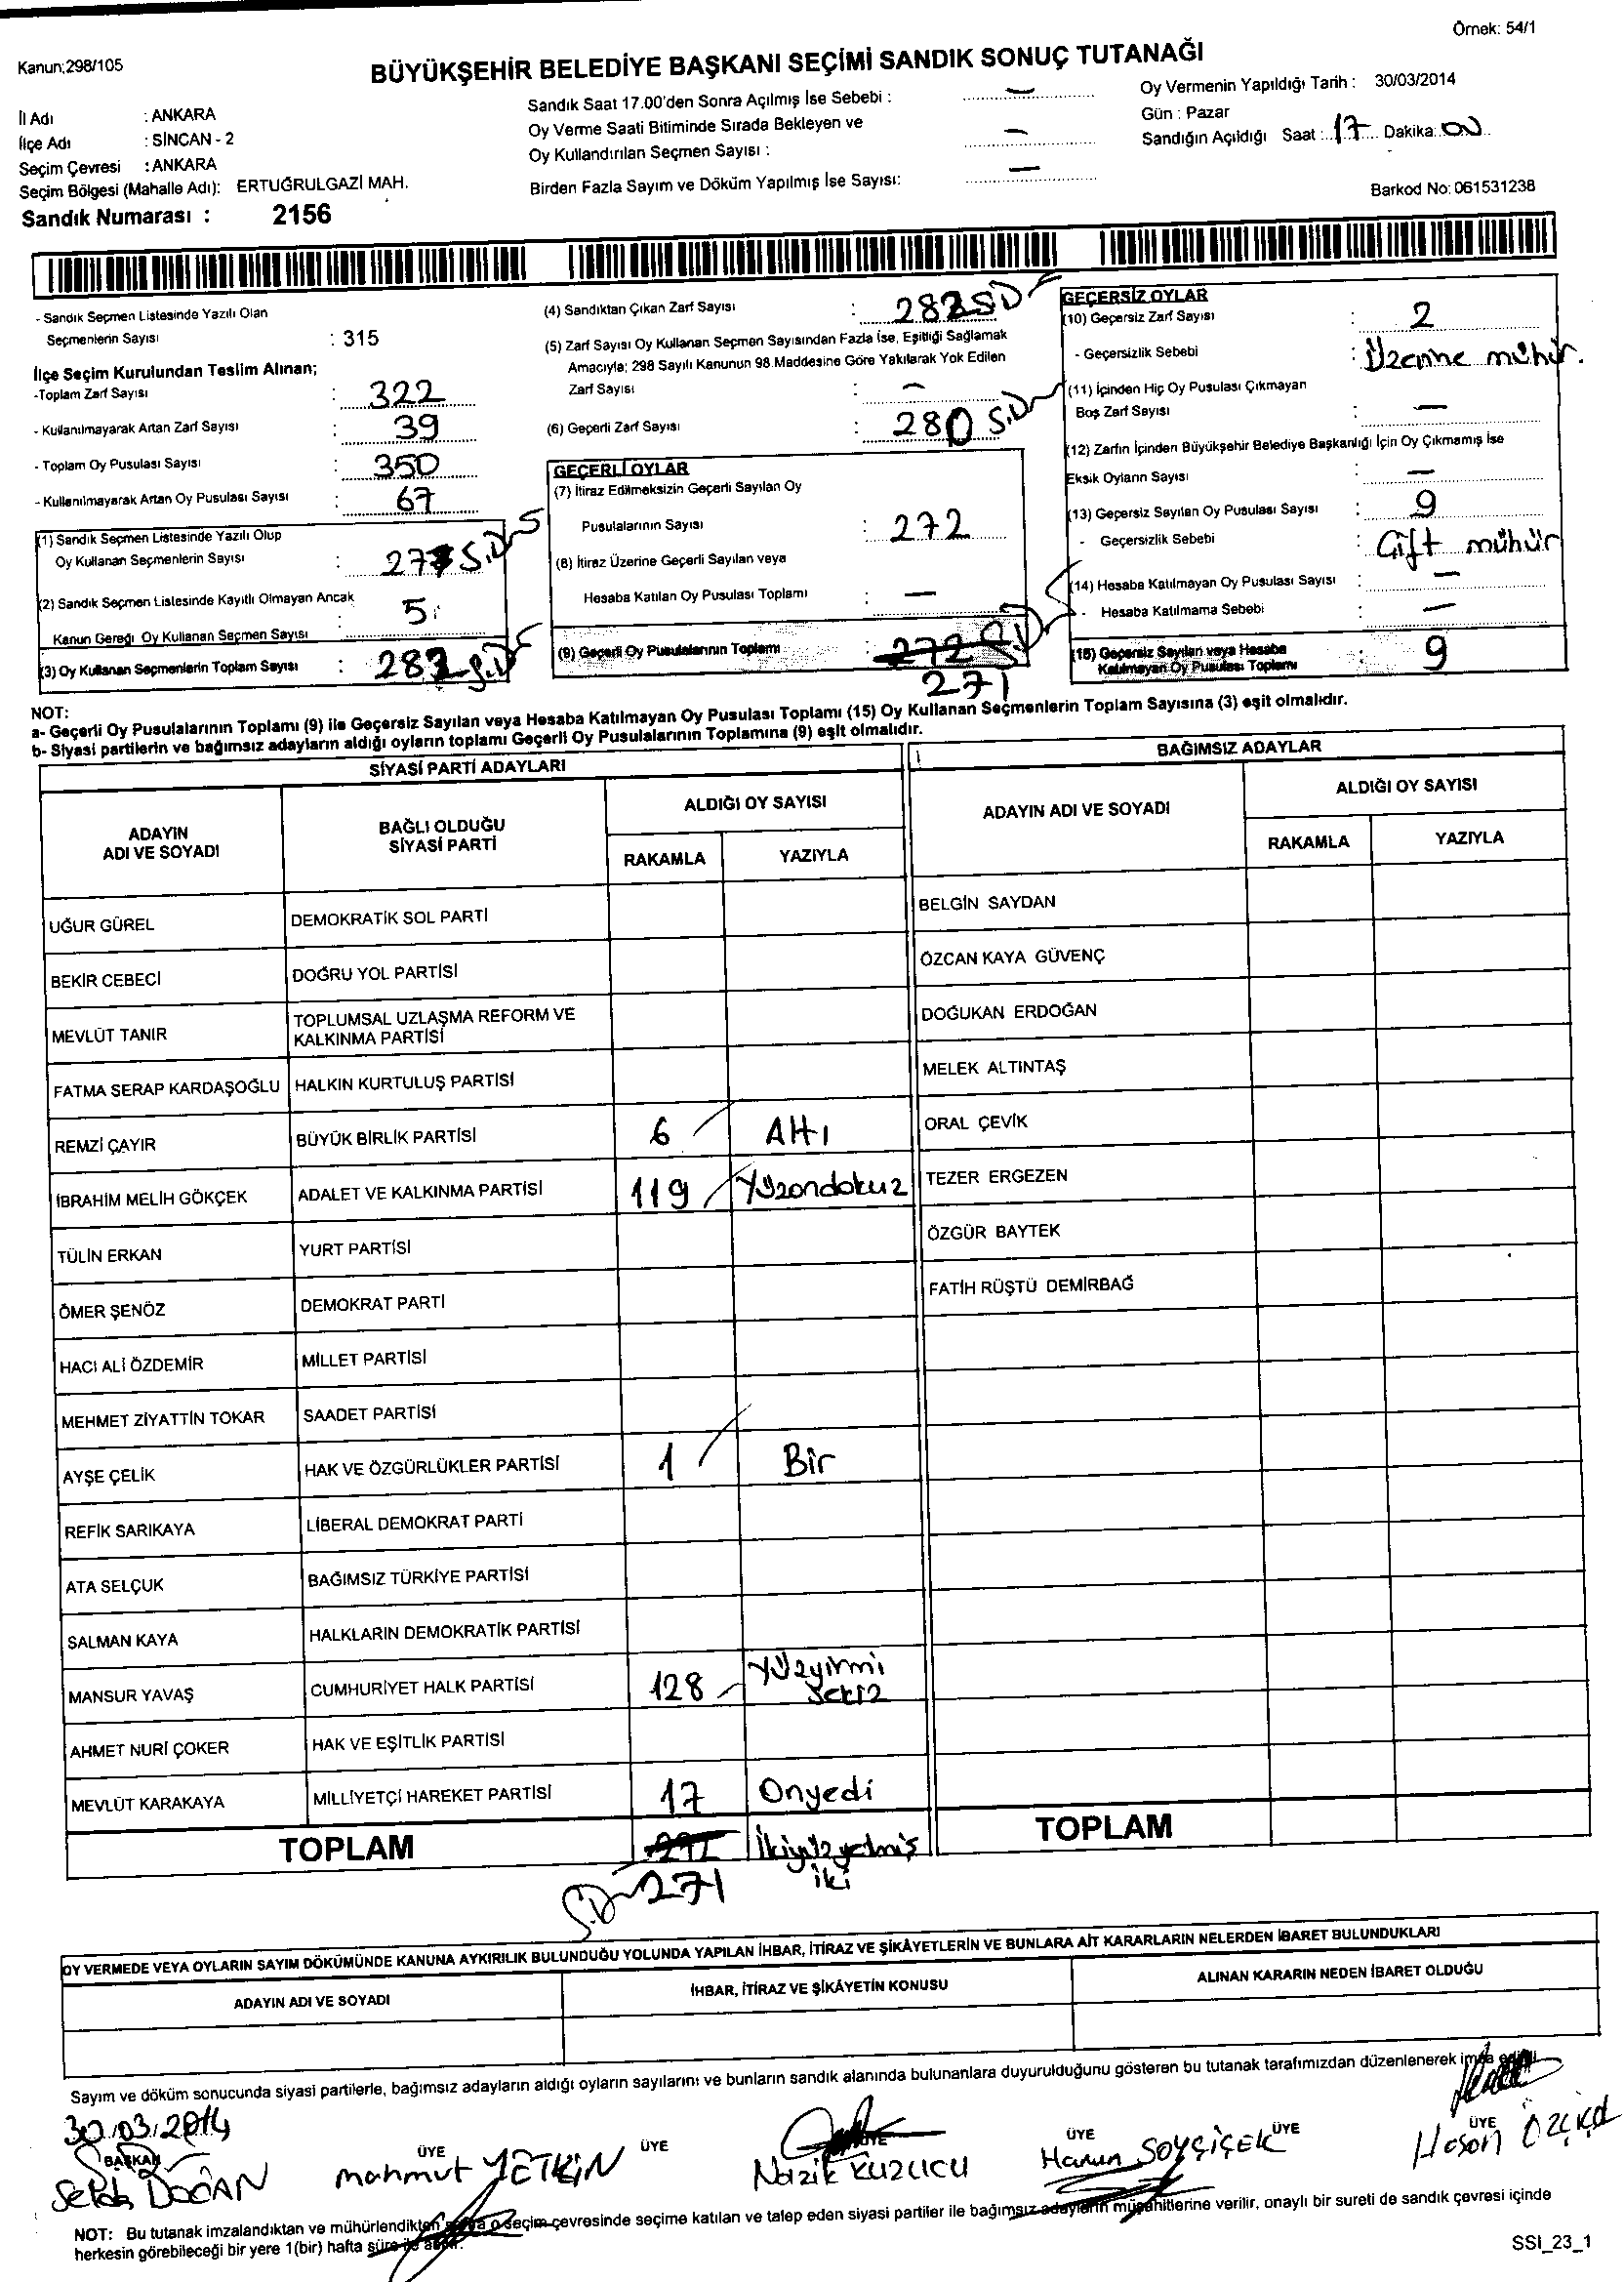 Örnek: 54/1
Kanun:298/105
BÜYÜKŞEHİR BELEDİYE BAŞKANI SEÇİMİ SANDIK SONUÇ TUTANAĞI
İl Adı : ANKARA
İlçe Adı : SİNCAN - 2
Seçim Çevresi : ANKARA
Seçim Bölgesi (Mahalle Adı): ERTUĞRULGAZİ MAH.
Sandık Numarası : 2156
Sandık Saat 17.00'den Sonra Açılmış İse Sebebi : —
Oy Verme Saati Bitiminde Sırada Bekleyen ve
Oy Kullandırılan Seçmen Sayısı : —
Birden Fazla Sayım ve Döküm Yapılmış İse Sayısı: —
Oy Vermenin Yapıldığı Tarih : 30/03/2014
Gün : Pazar
Sandığın Açıldığı Saat : 17 Dakika: 00
Barkod No: 061531238
- Sandık Seçmen Listesinde Yazılı Olan
Seçmenlerin Sayısı : 315
İlçe Seçim Kurulundan Teslim Alınan;
-Toplam Zarf Sayısı : 322
- Kullanılmayarak Artan Zarf Sayısı : 39
- Toplam Oy Pusulası Sayısı : 350
- Kullanılmayarak Artan Oy Pusulası Sayısı : 67
(1) Sandık Seçmen Listesinde Yazılı Olup
Oy Kullanan Seçmenlerin Sayısı : S.D
(2) Sandık Seçmen Listesinde Kayıtlı Olmayan Ancak
Kanun Gereği Oy Kullanan Seçmen Sayısı : 5
(3) Oy Kullanan Seçmenlerin Toplam Sayısı : S.D
(4) Sandıktan Çıkan Zarf Sayısı : S.D
(5) Zarf Sayısı Oy Kullanan Seçmen Sayısından Fazla İse, Eşitliği Sağlamak
Amacıyla; 298 Sayılı Kanunun 98.Maddesine Göre Yakılarak Yok Edilen
Zarf Sayısı : —
(6) Geçerli Zarf Sayısı : 280 S.D
GEÇERLİ OYLAR
(7) İtiraz Edilmeksizin Geçerli Sayılan Oy
Pusulalarının Sayısı : 272
(8) İtiraz Üzerine Geçerli Sayılan veya
Hesaba Katılan Oy Pusulası Toplamı : —
(9) Geçerli Oy Pusulalarının Toplamı : 272 S.D
271
GEÇERSİZ OYLAR
(10) Geçersiz Zarf Sayısı : 2
- Geçersizlik Sebebi : Üzerine mühür.
(11) İçinden Hiç Oy Pusulası Çıkmayan
Boş Zarf Sayısı : —
(12) Zarfın İçinden Büyükşehir Belediye Başkanlığı İçin Oy Çıkmamış İse
Eksik Oyların Sayısı : —
(13) Geçersiz Sayılan Oy Pusulası Sayısı : 9
- Geçersizlik Sebebi : Çift mühür
(14) Hesaba Katılmayan Oy Pusulası Sayısı : —
- Hesaba Katılmama Sebebi : —
(15) Geçersiz Sayılan veya Hesaba
Katılmayan Oy Pusulası Toplamı : 9
NOT:
a- Geçerli Oy Pusulalarının Toplamı (9) ile Geçersiz Sayılan veya Hesaba Katılmayan Oy Pusulası Toplamı (15) Oy Kullanan Seçmenlerin Toplam Sayısına (3) eşit olmalıdır.
b- Siyasi partilerin ve bağımsız adayların aldığı oyların toplamı Geçerli Oy Pusulalarının Toplamına (9) eşit olmalıdır.
SİYASİ PARTİ ADAYLARI
ADAYIN ADI VE SOYADI
BAĞLI OLDUĞU SİYASİ PARTİ
ALDIĞI OY SAYISI
RAKAMLA YAZIYLA
UĞUR GÜREL DEMOKRATİK SOL PARTİ
BEKİR CEBECİ DOĞRU YOL PARTİSİ
MEVLÜT TANIR TOPLUMSAL UZLAŞMA REFORM VE KALKINMA PARTİSİ
FATMA SERAP KARDAŞOĞLU HALKIN KURTULUŞ PARTİSİ
REMZİ ÇAYIR BÜYÜK BİRLİK PARTİSİ 6 Altı
İBRAHİM MELİH GÖKÇEK ADALET VE KALKINMA PARTİSİ 119 Yüzondokuz
TÜLİN ERKAN YURT PARTİSİ
ÖMER ŞENÖZ DEMOKRAT PARTİ
HACI ALİ ÖZDEMİR MİLLET PARTİSİ
MEHMET ZİYATTİN TOKAR SAADET PARTİSİ
AYŞE ÇELİK HAK VE ÖZGÜRLÜKLER PARTİSİ 1 Bir
REFİK SARIKAYA LİBERAL DEMOKRAT PARTİ
ATA SELÇUK BAĞIMSIZ TÜRKİYE PARTİSİ
SALMAN KAYA HALKLARIN DEMOKRATİK PARTİSİ
MANSUR YAVAŞ CUMHURİYET HALK PARTİSİ 128 Yüzyirmi sekiz
AHMET NURİ ÇOKER HAK VE EŞİTLİK PARTİSİ
MEVLÜT KARAKAYA MİLLİYETÇİ HAREKET PARTİSİ 17 Onyedi
TOPLAM İkiyüzyetmiş iki
S.D 271
BAĞIMSIZ ADAYLAR
ADAYIN ADI VE SOYADI
ALDIĞI OY SAYISI
RAKAMLA YAZIYLA
BELGİN SAYDAN
ÖZCAN KAYA GÜVENÇ
DOĞUKAN ERDOĞAN
MELEK ALTINTAŞ
ORAL ÇEVİK
TEZER ERGEZEN
ÖZGÜR BAYTEK
FATİH RÜŞTÜ DEMİRBAĞ
TOPLAM
OY VERMEDE VEYA OYLARIN SAYIM DÖKÜMÜNDE KANUNA AYKIRILIK BULUNDUĞU YOLUNDA YAPILAN İHBAR, İTİRAZ VE ŞİKÂYETLERİN VE BUNLARA AİT KARARLARIN NELERDEN İBARET BULUNDUKLARI
ADAYIN ADI VE SOYADI İHBAR, İTİRAZ VE ŞİKÂYETİN KONUSU ALINAN KARARIN NEDEN İBARET OLDUĞU
Sayım ve döküm sonucunda siyasi partilerle, bağımsız adayların aldığı oyların sayılarını ve bunların sandık alanında bulunanlara duyurulduğunu gösteren bu tutanak tarafımızdan düzenlenerek imza
30.03.2014
BAŞKAN ÜYE ÜYE ÜYE ÜYE ÜYE ÜYE
DOĞAN mahmut YETKİN Nazik KUZUCU Harun SOYÇİÇEK Hasan
NOT: Bu tutanak imzalandıktan ve mühürlendikten sonra o seçim çevresinde seçime katılan ve talep eden siyasi partiler ile bağımsız adayların müşahitlerine verilir, onaylı bir sureti de sandık çevresi içinde
herkesin görebileceği bir yere 1(bir) hafta süre ile asılır.
SSI_23_1